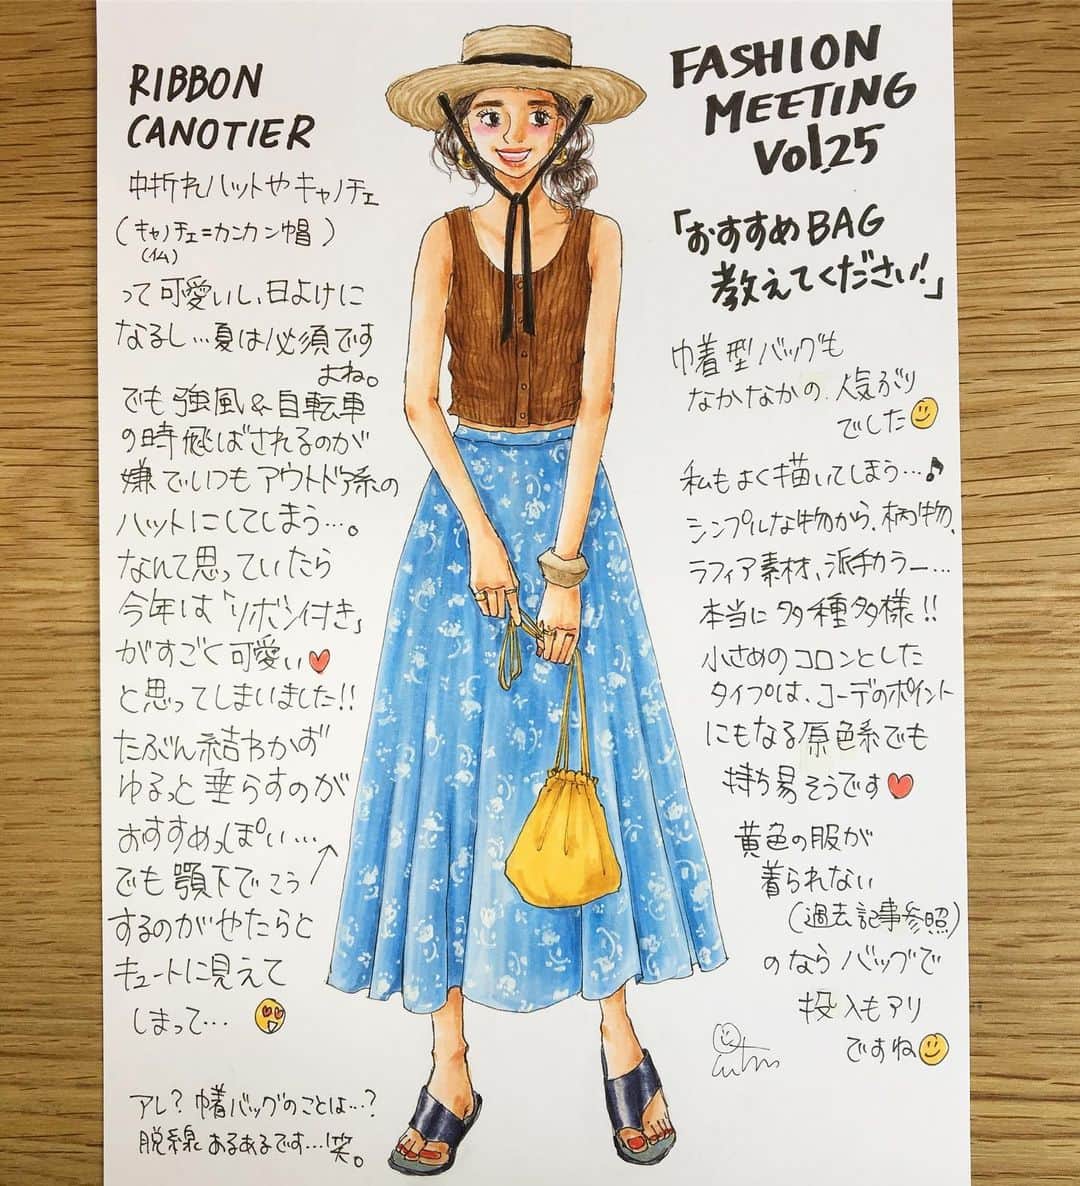 RIBBON
CANOTIER
中折れハットやキャノチェ
(キャノチェ=カンカン帽)
(仏)
って可愛いし、日よけに
なるし…夏は必須です
よね。
でも強風&自転車
の時飛ばされるのが
嫌でいつもアウトドア系の
ハットにしてしまう…。
なんて思っていたら
今年は「リボン付き」
がすごく可愛い
と思ってしまいました!!
たぶん結わかず
ゆるっと垂らすのが
おすすめっぽい…
でも顎下でこう
するのがやたらと
キュートに見えて
しまって…
アレ?巾着バッグのことは…?
脱線あるあるです…笑。
FASHION
MEETING
Vol.25
「おすすめBAG
教えてください!」
巾着型バッグも
なかなかの人気ぶり
でした
私もよく描いてしまう…♪
シンプルな物から、柄物、
ラフィア素材、派手カラー…
本当に多種多様!!
小さめのコロンとした
タイプは、コーデのポイント
にもなる原色系でも
持ち易そうです
黄色の服が
着られない
(過去記事参照)
のならバッグで
投入もアリ
ですね